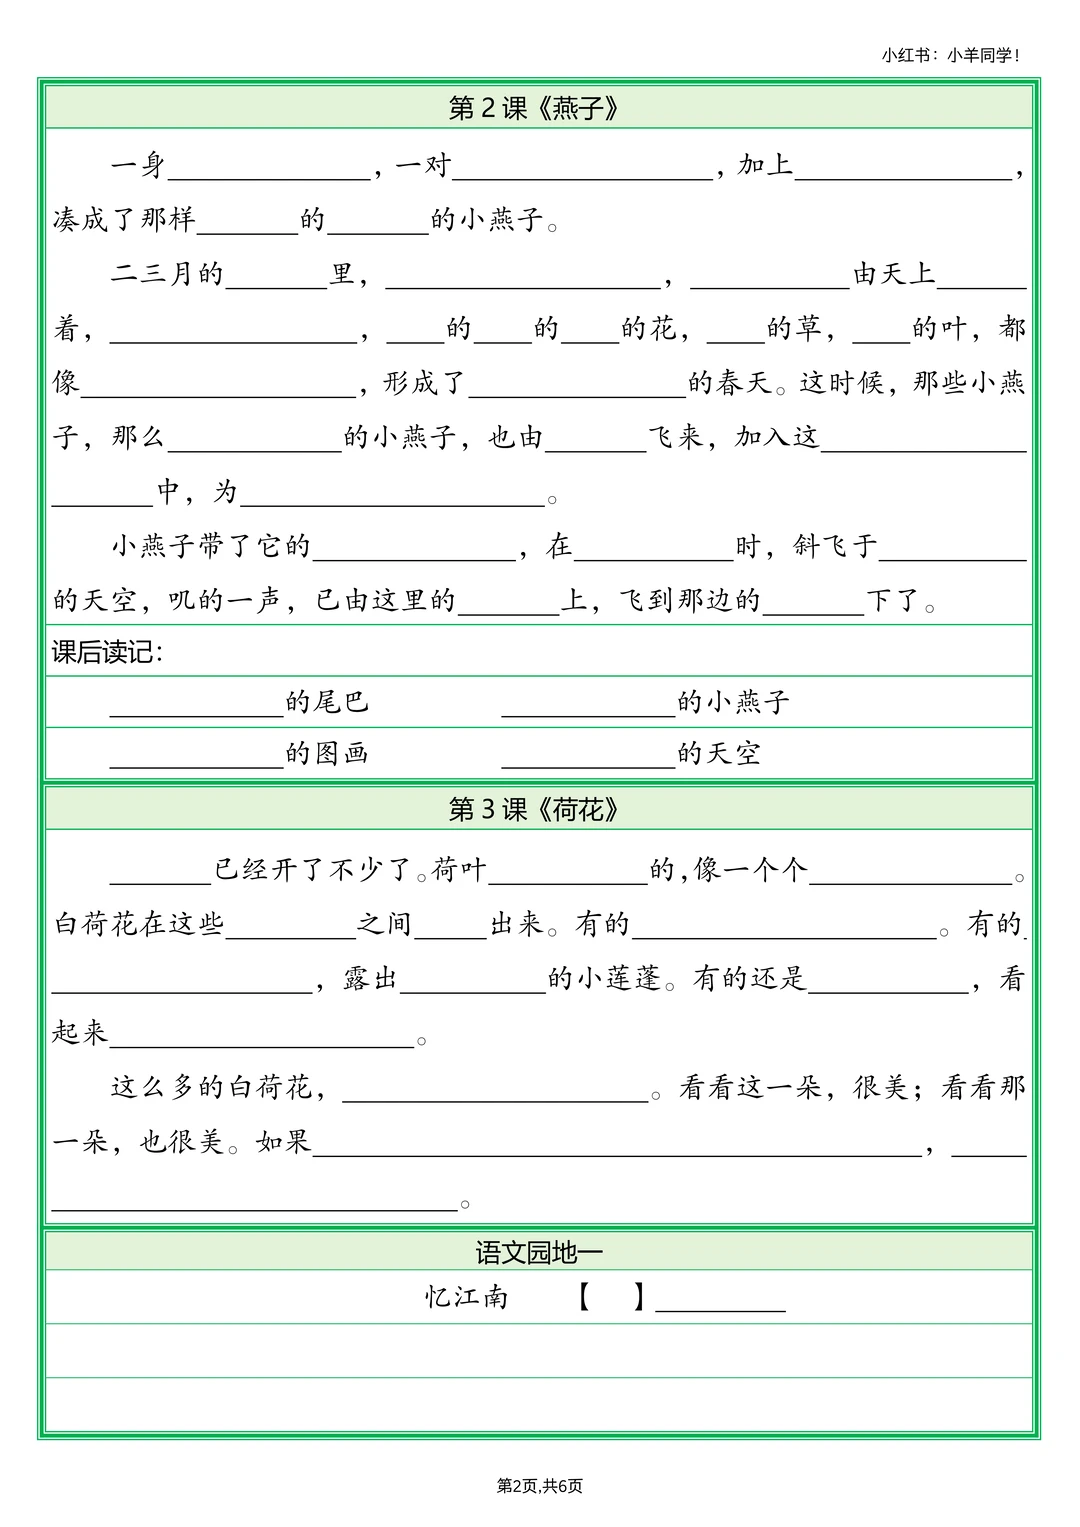 小红书：小羊同学！
第2课《燕子》
一身______________，一对__________________，加上_______________，
凑成了那样_______的_______的小燕子。
二三月的_______里，___________________，___________由天上______
着，_________________，____的____的____的花，____的草，____的叶，都
像___________________，形成了_______________的春天。这时候，那些小燕
子，那么____________的小燕子，也由_______飞来，加入这______________
_______中，为_____________________。
小燕子带了它的______________，在___________时，斜飞于__________
的天空，叽的一声，已由这里的_______上，飞到那边的_______下了。
课后读记：
____________的尾巴 ____________的小燕子
____________的图画 ____________的天空
第3课《荷花》
_______已经开了不少了。荷叶___________的，像一个个______________。
白荷花在这些_________之间_____出来。有的_____________________。有的
__________________，露出__________的小莲蓬。有的还是___________，看
起来_____________________。
这么多的白荷花，_____________________。看看这一朵，很美；看看那
一朵，也很美。如果__________________________________________，_____
____________________________。
语文园地一
忆江南 【 】_________
第2页,共6页